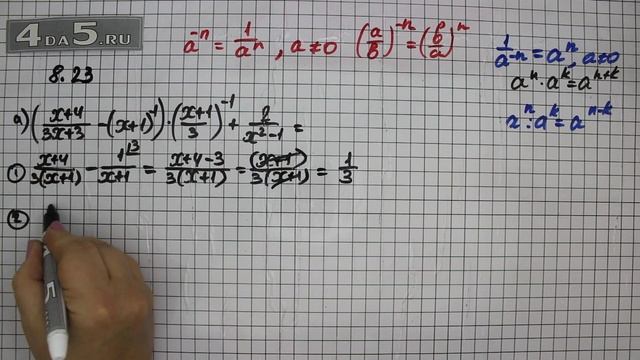 4DA5.RU
a⁻ⁿ = 1/aⁿ, a≠0 (a/b)⁻ⁿ = (b/a)ⁿ
1/a⁻ⁿ = aⁿ, a≠0
aⁿ · aᵏ = aⁿ⁺ᵏ
aⁿ : aᵏ = aⁿ⁻ᵏ
8.23
а) ((x+4)/(3x+3) − (x+1)⁻¹) · ((x+1)/3)⁻¹ + 2/(x²−1) =
① (x+4)/(3(x+1)) − 1^{\3}/(x+1) = (x+4−3)/(3(x+1)) = (x+1)/(3(x+1)) = 1/3
②